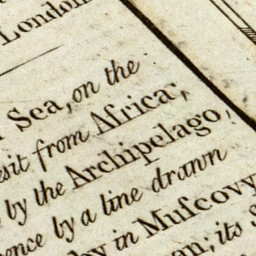 London
Sea, on the
from Africa;
by the Archipelago,
by a line drawn
in Muſcovy
its